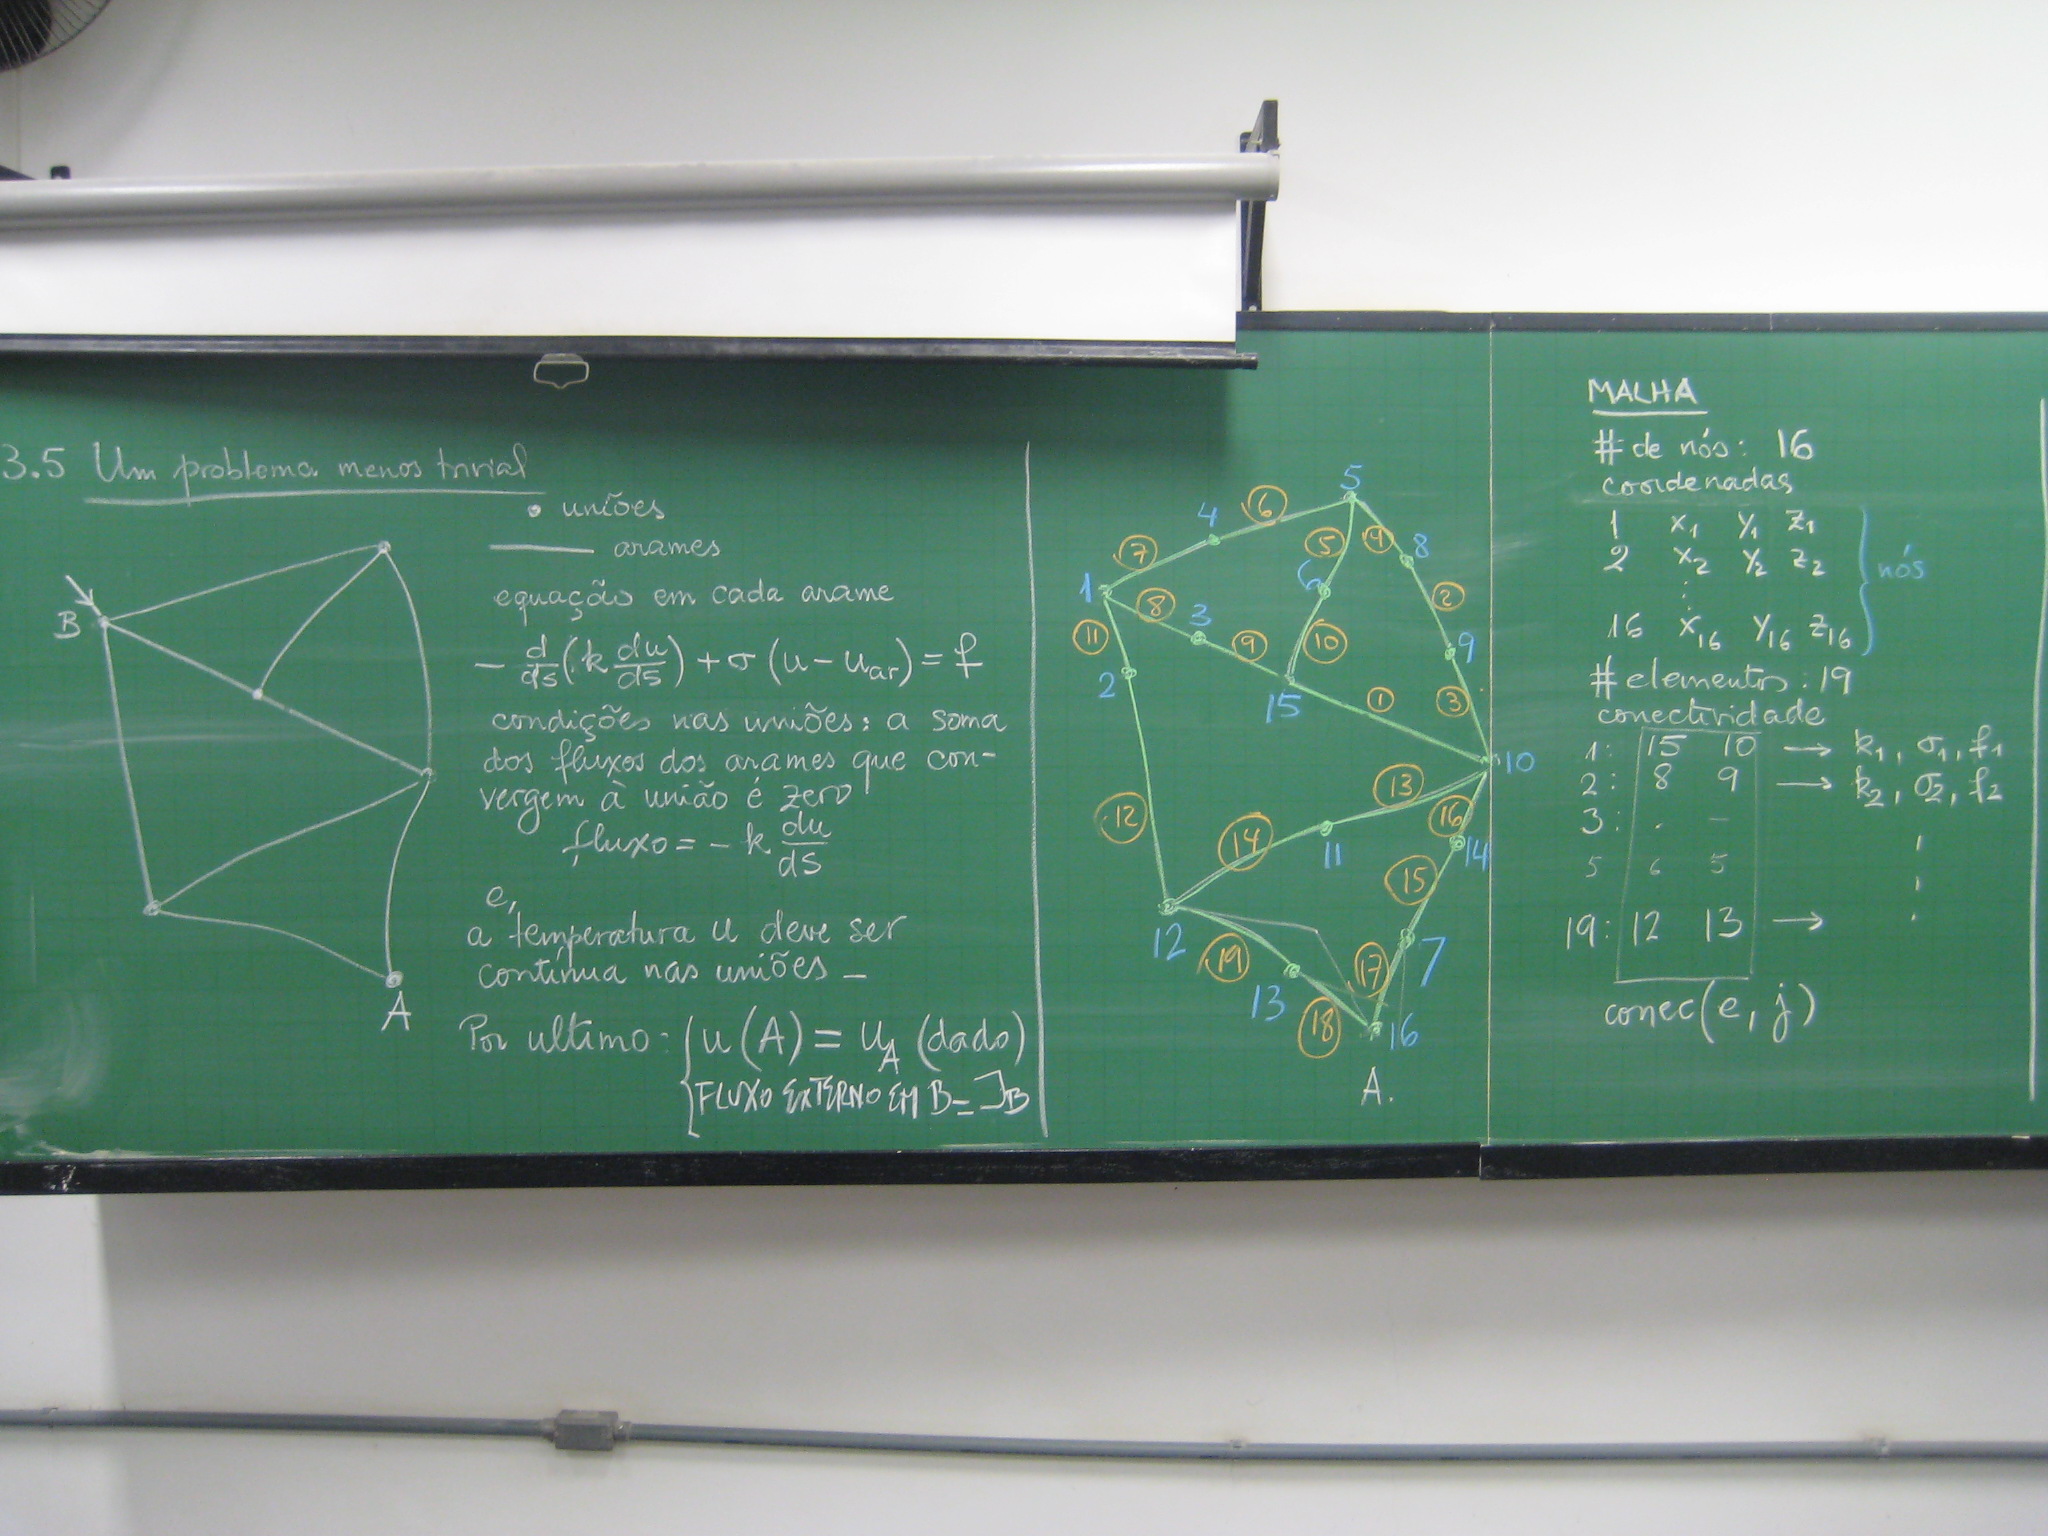 3.5 Um problema menos trivial
• uniões
—— arames
B
A
equação em cada arame
- d/ds (k du/ds) + σ (u - u_ar) = f
condições nas uniões: a soma
dos fluxos dos arames que con-
vergem à união é zero
fluxo = - k du/ds
e,
a temperatura u deve ser
contínua nas uniões -
Por ultimo: { u(A) = u_A (dado)
FLUXO EXTERNO EM B = J_B
5
4 6
7 5 4 8
1 6
8 3 2
11 9 10 9
2 15 1 3
10
13
12 14 16
11 14
15
12 19 17 7
13
18 16
A.
MALHA
# de nós: 16
coordenadas
1 x₁ y₁ z₁
2 x₂ y₂ z₂
⋮
16 x₁₆ y₁₆ z₁₆
} nós
# elementos: 19
conectividade
1: 15 10 → k₁, σ₁, f₁
2: 8 9 → k₂, σ₂, f₂
3: . –
5 6 5
19: 12 13 →
conec(e, j)